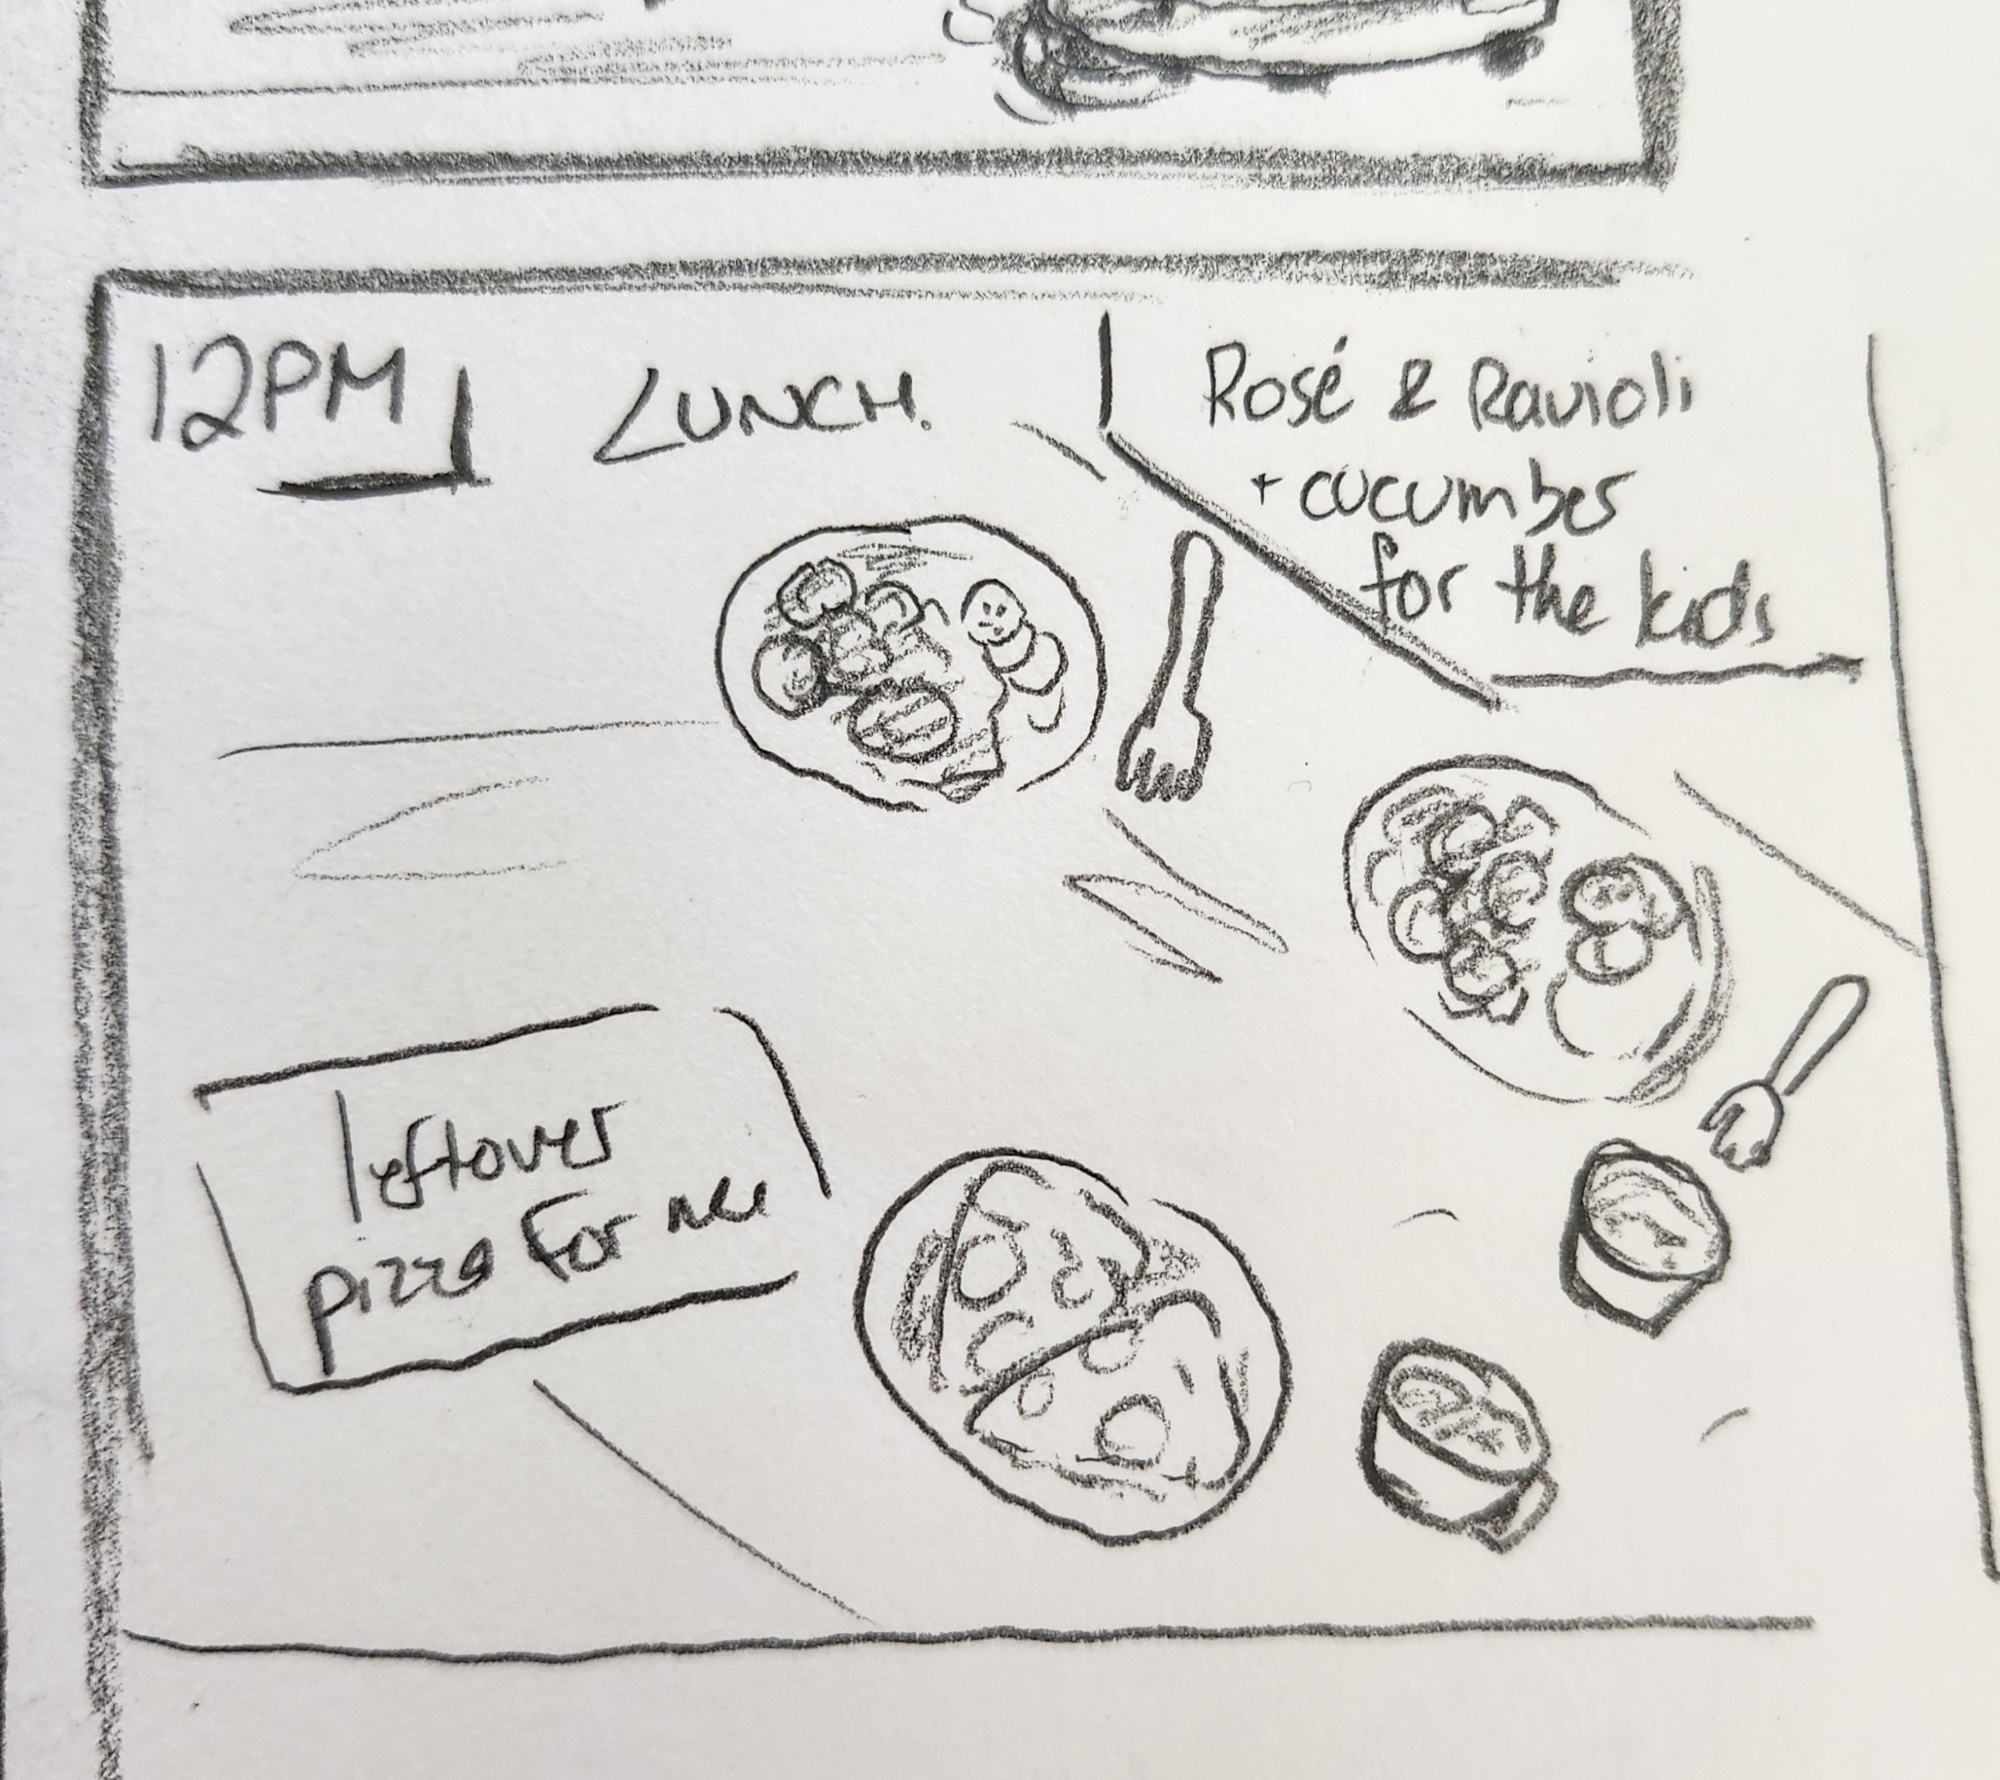 12PM
LUNCH.
Rosé & Ravioli
+ cucumber
for the kids
leftover
pizza For me